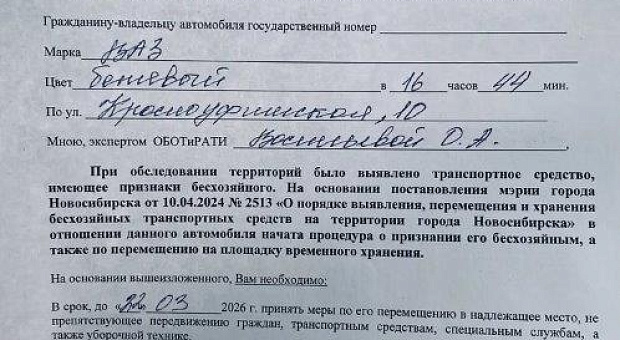 Гражданину-владельцу автомобиля государственный номер
Марка ВАЗ
Цвет бежевый в 16 часов 44 мин.
По ул. Красноуфимская, 10
Мною, экспертом ОБОТиРАТИ Васильевой О.А.
При обследовании территорий было выявлено транспортное средство,
имеющее признаки бесхозяйного. На основании постановления мэрии города
Новосибирска от 10.04.2024 № 2513 «О порядке выявления, перемещения и хранения
бесхозяйных транспортных средств на территории города Новосибирска» в
отношении данного автомобиля начата процедура о признании его бесхозяйным, а
также по перемещению на площадку временного хранения.
На основании вышеизложенного, Вам необходимо:
В срок, до «22 03 2026 г. принять меры по его перемещению в надлежащее место, не
препятствующее передвижению граждан, транспортным средствам, специальным службам, а
также уборочной технике.